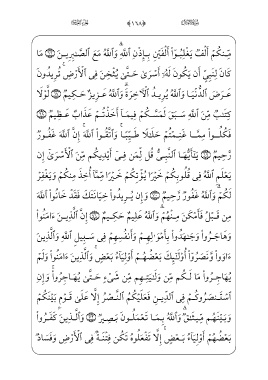 ﴿١٦٨﴾
مِّنكُمْ أَلْفٌ يَغْلِبُوٓا۟ أَلْفَيْنِ بِإِذْنِ ٱللَّهِ ۗ وَٱللَّهُ مَعَ ٱلصَّـٰبِرِينَ ﴿٦٦﴾ مَا
كَانَ لِنَبِىٍّ أَن يَكُونَ لَهُۥٓ أَسْرَىٰ حَتَّىٰ يُثْخِنَ فِى ٱلْأَرْضِ ۚ تُرِيدُونَ
عَرَضَ ٱلدُّنْيَا وَٱللَّهُ يُرِيدُ ٱلْـَٔاخِرَةَ ۗ وَٱللَّهُ عَزِيزٌ حَكِيمٌ ﴿٦٧﴾ لَّوْلَا
كِتَـٰبٌ مِّنَ ٱللَّهِ سَبَقَ لَمَسَّكُمْ فِيمَآ أَخَذْتُمْ عَذَابٌ عَظِيمٌ ﴿٦٨﴾
فَكُلُوا۟ مِمَّا غَنِمْتُمْ حَلَـٰلًا طَيِّبًا ۚ وَٱتَّقُوا۟ ٱللَّهَ ۚ إِنَّ ٱللَّهَ غَفُورٌ
رَّحِيمٌ ﴿٦٩﴾ يَـٰٓأَيُّهَا ٱلنَّبِىُّ قُل لِّمَن فِىٓ أَيْدِيكُم مِّنَ ٱلْأَسْرَىٰٓ إِن
يَعْلَمِ ٱللَّهُ فِى قُلُوبِكُمْ خَيْرًا يُؤْتِكُمْ خَيْرًا مِّمَّآ أُخِذَ مِنكُمْ وَيَغْفِرْ
لَكُمْ ۗ وَٱللَّهُ غَفُورٌ رَّحِيمٌ ﴿٧٠﴾ وَإِن يُرِيدُوا۟ خِيَانَتَكَ فَقَدْ خَانُوا۟ ٱللَّهَ
مِن قَبْلُ فَأَمْكَنَ مِنْهُمْ ۗ وَٱللَّهُ عَلِيمٌ حَكِيمٌ ﴿٧١﴾ إِنَّ ٱلَّذِينَ ءَامَنُوا۟
وَهَاجَرُوا۟ وَجَـٰهَدُوا۟ بِأَمْوَٰلِهِمْ وَأَنفُسِهِمْ فِى سَبِيلِ ٱللَّهِ وَٱلَّذِينَ
ءَاوَوا۟ وَّنَصَرُوٓا۟ أُو۟لَـٰٓئِكَ بَعْضُهُمْ أَوْلِيَآءُ بَعْضٍ ۚ وَٱلَّذِينَ ءَامَنُوا۟ وَلَمْ
يُهَاجِرُوا۟ مَا لَكُم مِّن وَلَـٰيَتِهِم مِّن شَىْءٍ حَتَّىٰ يُهَاجِرُوا۟ ۚ وَإِنِ
ٱسْتَنصَرُوكُمْ فِى ٱلدِّينِ فَعَلَيْكُمُ ٱلنَّصْرُ إِلَّا عَلَىٰ قَوْمٍۭ بَيْنَكُمْ
وَبَيْنَهُم مِّيثَـٰقٌ ۗ وَٱللَّهُ بِمَا تَعْمَلُونَ بَصِيرٌ ﴿٧٢﴾ وَٱلَّذِينَ كَفَرُوا۟
بَعْضُهُمْ أَوْلِيَآءُ بَعْضٍ ۚ إِلَّا تَفْعَلُوهُ تَكُن فِتْنَةٌ فِى ٱلْأَرْضِ وَفَسَادٌ